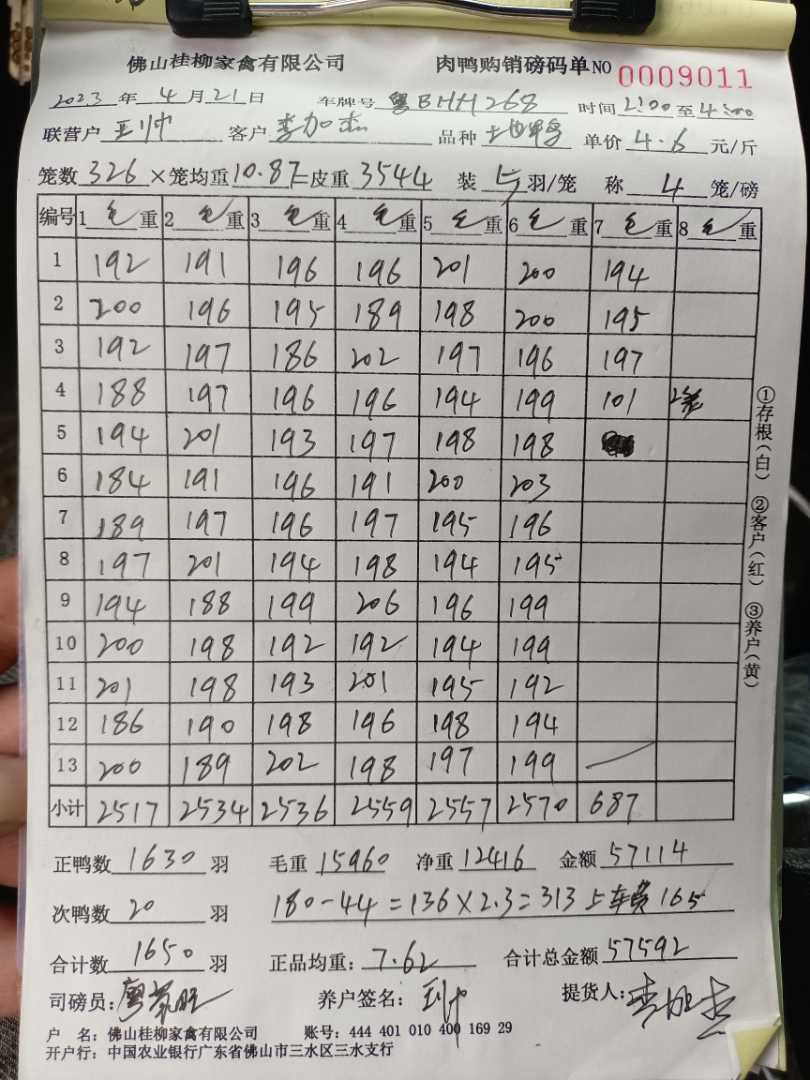 佛山桂柳家禽有限公司 肉鸭购销磅码单NO 0009011
2023年4月21日 车牌号 粤BHH268 时间 2:00至4:00
联营户 王帅 客户 李加杰 品种 土地鸭 单价 4.6 元/斤
笼数 326 ×笼均重 10.87=皮重 3544 装 5 羽/笼 称 4 笼/磅
编号 1 毛 重 2 毛 重 3 毛 重 4 毛 重 5 毛 重 6 毛 重 7 毛 重 8 毛 重
1 192 191 196 196 201 200 194
2 200 196 195 189 198 200 195
3 192 197 186 202 197 196 197
4 188 197 196 196 194 199 101 2笼
5 194 201 193 197 198 198
6 184 191 196 191 200 203
7 189 197 196 197 195 196
8 197 201 194 198 194 195
9 194 188 199 206 196 199
10 200 198 192 192 194 199
11 201 198 193 201 195 192
12 186 190 198 196 198 194
13 200 189 202 198 197 199
小计 2517 2534 2536 2559 2557 2570 687
正鸭数 1630 羽 毛重 15960 净重 12416 金额 57114
次鸭数 20 羽 180-44=136×2.3=313 上车费 165
合计数 1650 羽 正品均重: 7.62 合计总金额 57592
司磅员: 养户签名: 王帅 提货人: 李加杰
户 名: 佛山桂柳家禽有限公司 账号: 444 401 010 400 169 29
开户行: 中国农业银行广东省佛山市三水区三水支行
①存根(白) ②客户(红) ③养户(黄)